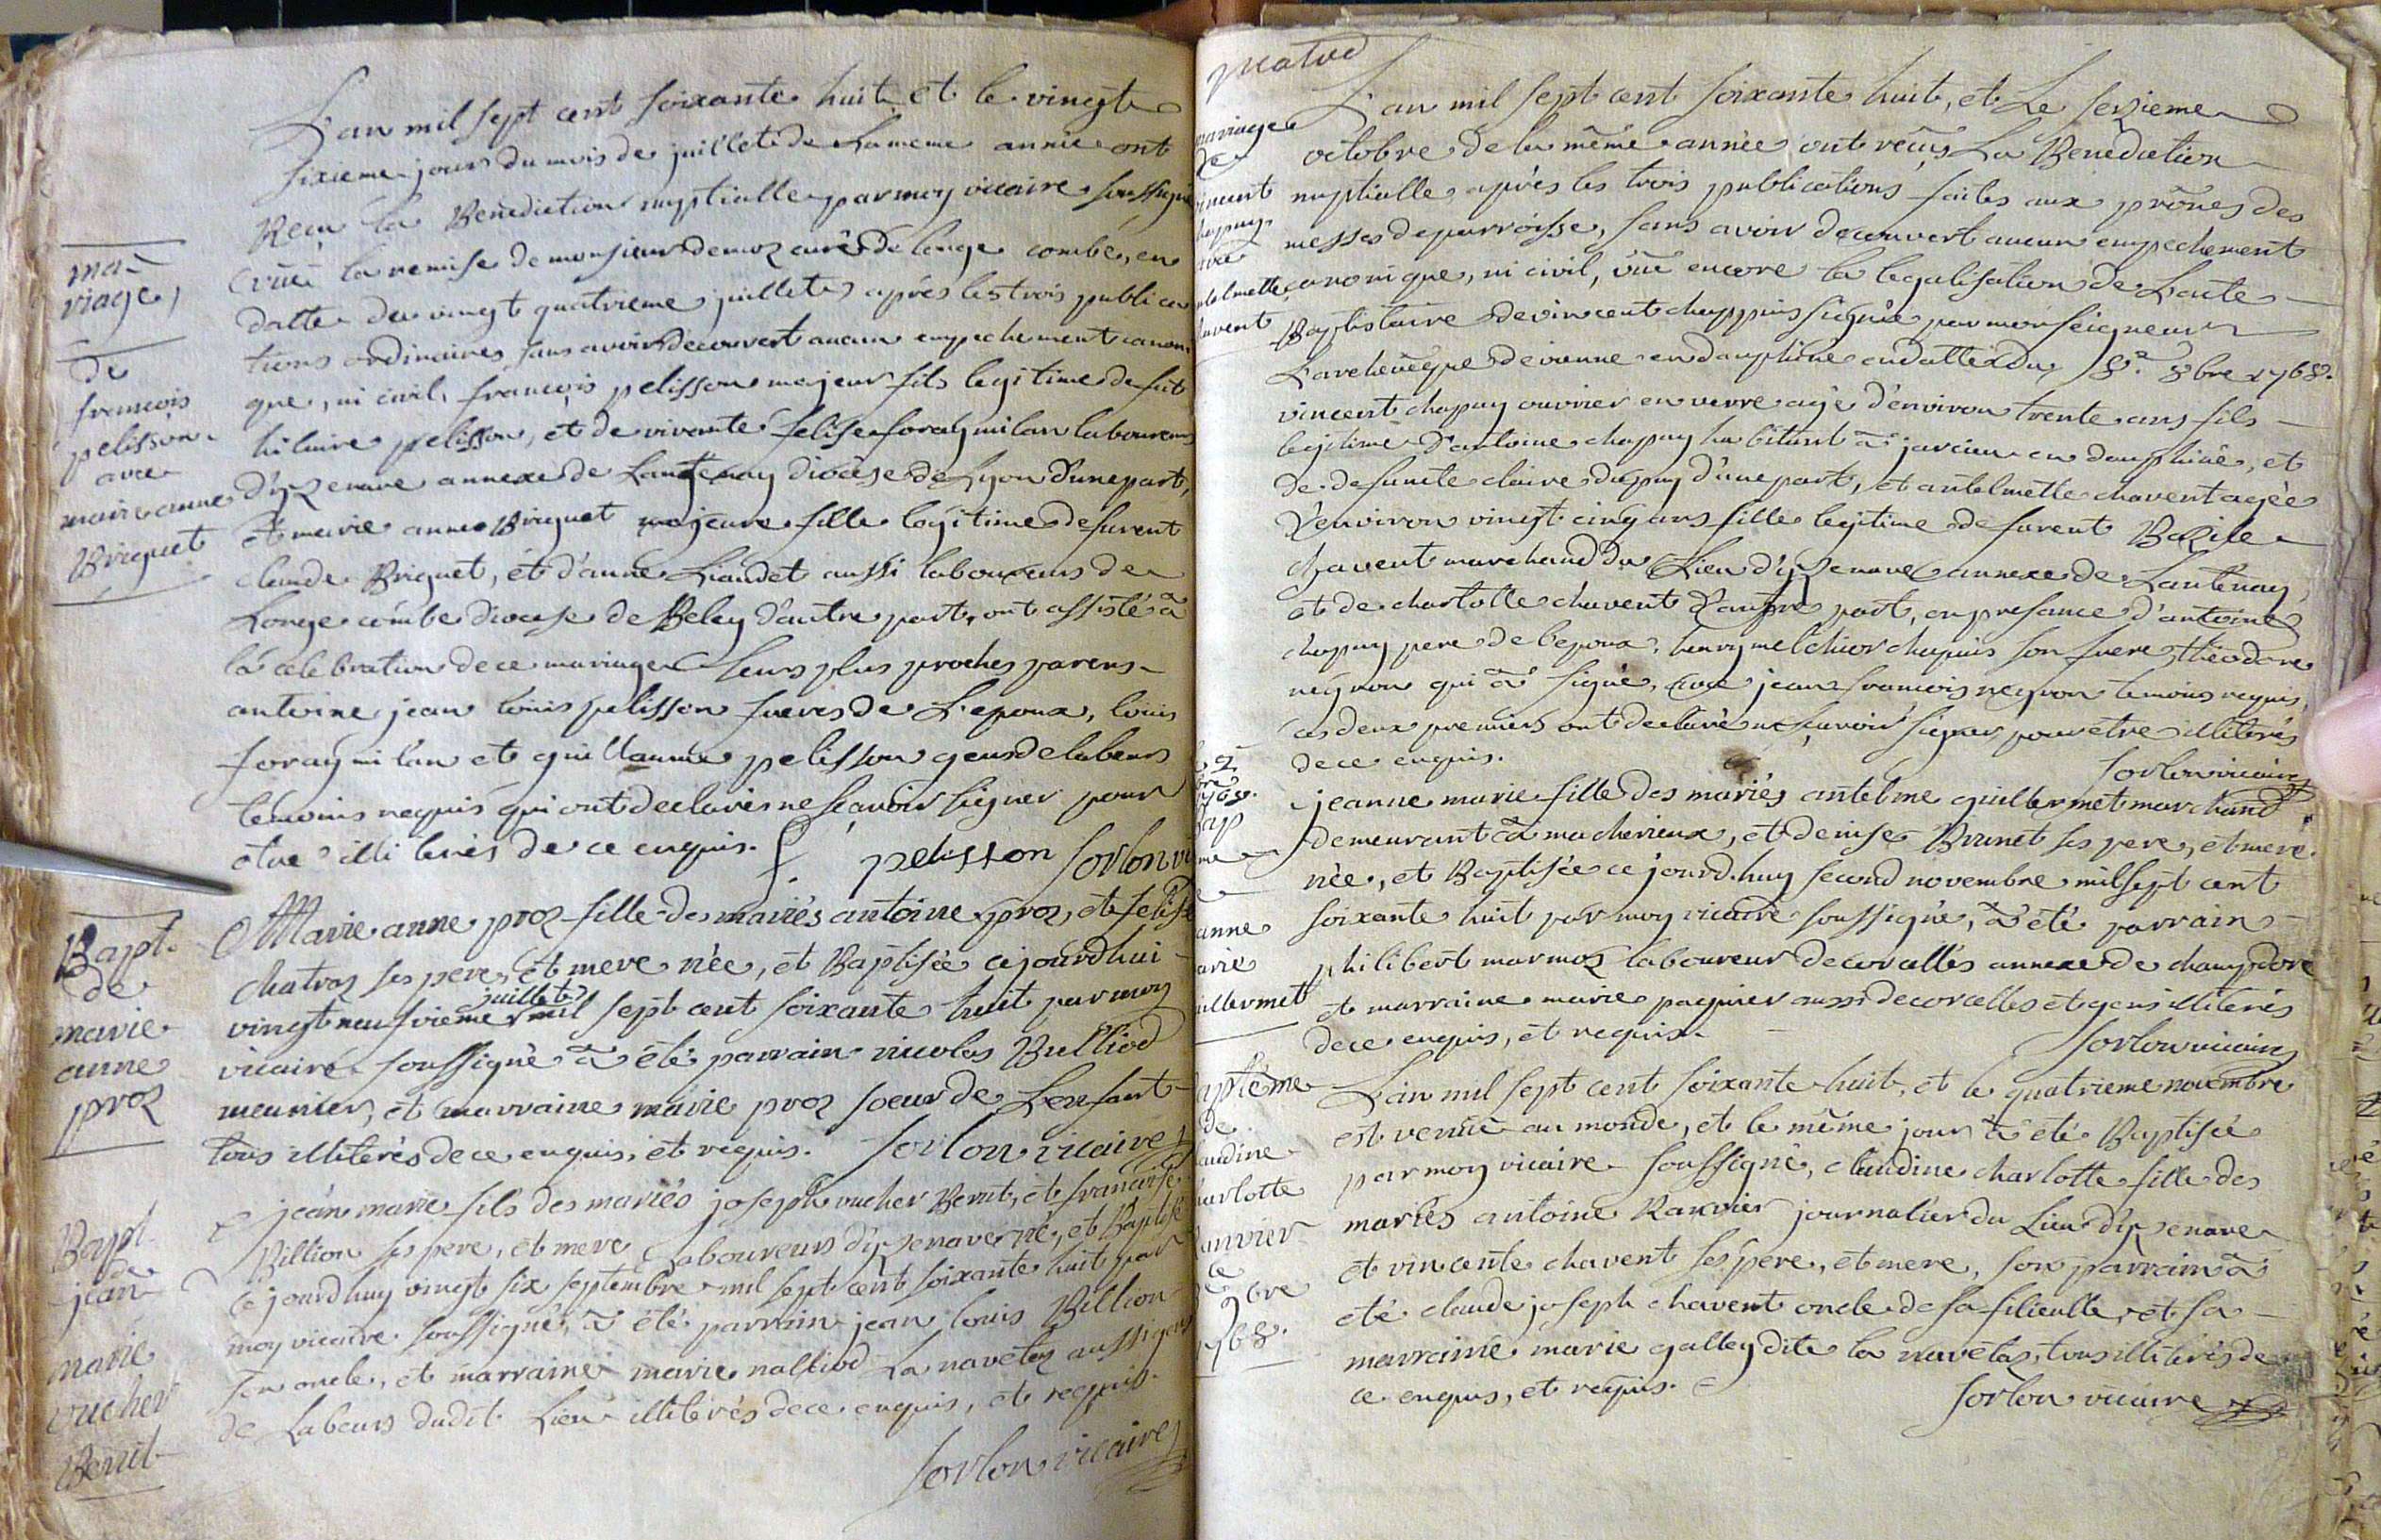 L'an mil sept cent soixante huit, et le vingt
sixieme jour du mois de juillet de la meme année ont
Reçu la Benediction nuptialle par moy vicaire soussigné
vüe la remise de monsieur demoz curé de longe combe, en
datte du vingt quatrieme juillet après les trois publica
tions ordinaires sans avoir decouvert aucun empechement canoni
que, ni civil, françois pelisson majeur fils legitime de fut
hilaire pelisson, et de vivante felise foray milan laboureurs
d'izenave annexe de Lantenay diocèse de Lyon d'une part,
et marie anne Briquet majeure fille legitime de furent
claude Briquet, et d'anne Liaudet aussi laboureurs de
Longe combe diocese de Beley d'autre part, ont assisté à
la celebration de ce mariage leurs plus proches parens
antoine jean louis pelisson freres de l'epoux, louis
foray milan et guillaume pelisson gens de labeurs
temoins requis qui ont declarés ne scavoir signer pour
etre illiterés de ce enquis. pelisson sorlon vi
ma-
riage,
de
francois
pelisson
avec
marie anne
Briquet
Marie anne proz fille des mariés antoine proz, et felise
chatroz ses pere, et mere née, et Baptisée ce jourd'hui
juillet
vingt neufvieme mil sept cent soixante huit par moy
vicaire soussigné à été parrain nicolas Bulliod
meunier, et marraine marie proz soeur de l'enfant
tous illiterés de ce enquis, et requis. sorlon vicaire
Bapt.
de
marie
anne
proz
jean marie fils des mariés joseph vucher Benit, et françoise
Billion ses pere, et mere Laboureurs d'izenave né, et Baptisé
ce jourd huy vingt six septembre mil sept cent soixante huit par
moy vicaire soussigné, à été parrain jean louis Billion
son oncle, et marraine marie nalliod La navetaz aussi gens
de Labeurs dudit Lieu illiterés de ce enquis, et requis.
sorlon vicaire
Bapt
de
jean
marie
vucher
Benit
L'an mil sept cent soixante huit, et le sezieme
octobre de la même année ont reçus La Benediction
nuptialle, après les trois publications faites aux prônes des
messes de parroisse, sans avoir decouvert aucun empechement
canonique, ni civil, vüe encore la legalisation de L'acte
Baptistaire de vincent chappuis signée par monseigneur
L'archevêque de vienne en dauphiné en datte du 8e 8bre 1768.
vincent chapuy ouvrier en verre agé d'environ trente ans fils
legitime d'antoine chapuy habitant à jarcieu en dauphiné, et
de defunte claire dupuy d'une part, et antelmette chavent agée
d'environ vingt cinq ans fille legitime de furent Bazile
chavent marchand du Lieu d'izenave annexe de Lantenay,
et de charlotte chavent d'autre part, en presance d'antoine
chapuy pere de l'epoux, henry melchior chapuis son frere, théodore
neyron qui à signé, avec jean francois neyron temoins requis,
les deux premiers ont declaré ne sçavoir signer pour etre illiterés
de ce enquis.
sorlon vicaire
mariage
de
vincent
chapuy
avec
antelmette
chavent
jeanne marie fille des mariés antelme guillermet marchand
demeurant à macherieux, et denise Brunet ses pere, et mere
née, et Baptisée ce jourd.huy second novembre mil sept cent
soixante huit par moy vicaire soussigné, à été parrain
philibert marmoz laboureur de corcelles annexe de champdore
et marraine marie paquier aussi de corcelles et gens illiterés
de ce enquis, et requis.
sorlon vicaire
anne
arie
uillermet
L'an mil sept cent soixante huit, et le quatrieme novembre
est venüe au monde, et le même jour à été Baptisée
par moy vicaire soussigné, claudine charlotte fille des
mariés antoine Ranvier journalier du Lieu d'izenave
et vincente chavent ses pere, et mere, son parrain à
été claude joseph chavent oncle de sa filieulle, et sa
marraine marie galley dite la navetaz, tous illiterés de
ce enquis, et requis.
sorlon vicaire
aptême
de
audine
harlotte
anvier
le
9bre
1768.